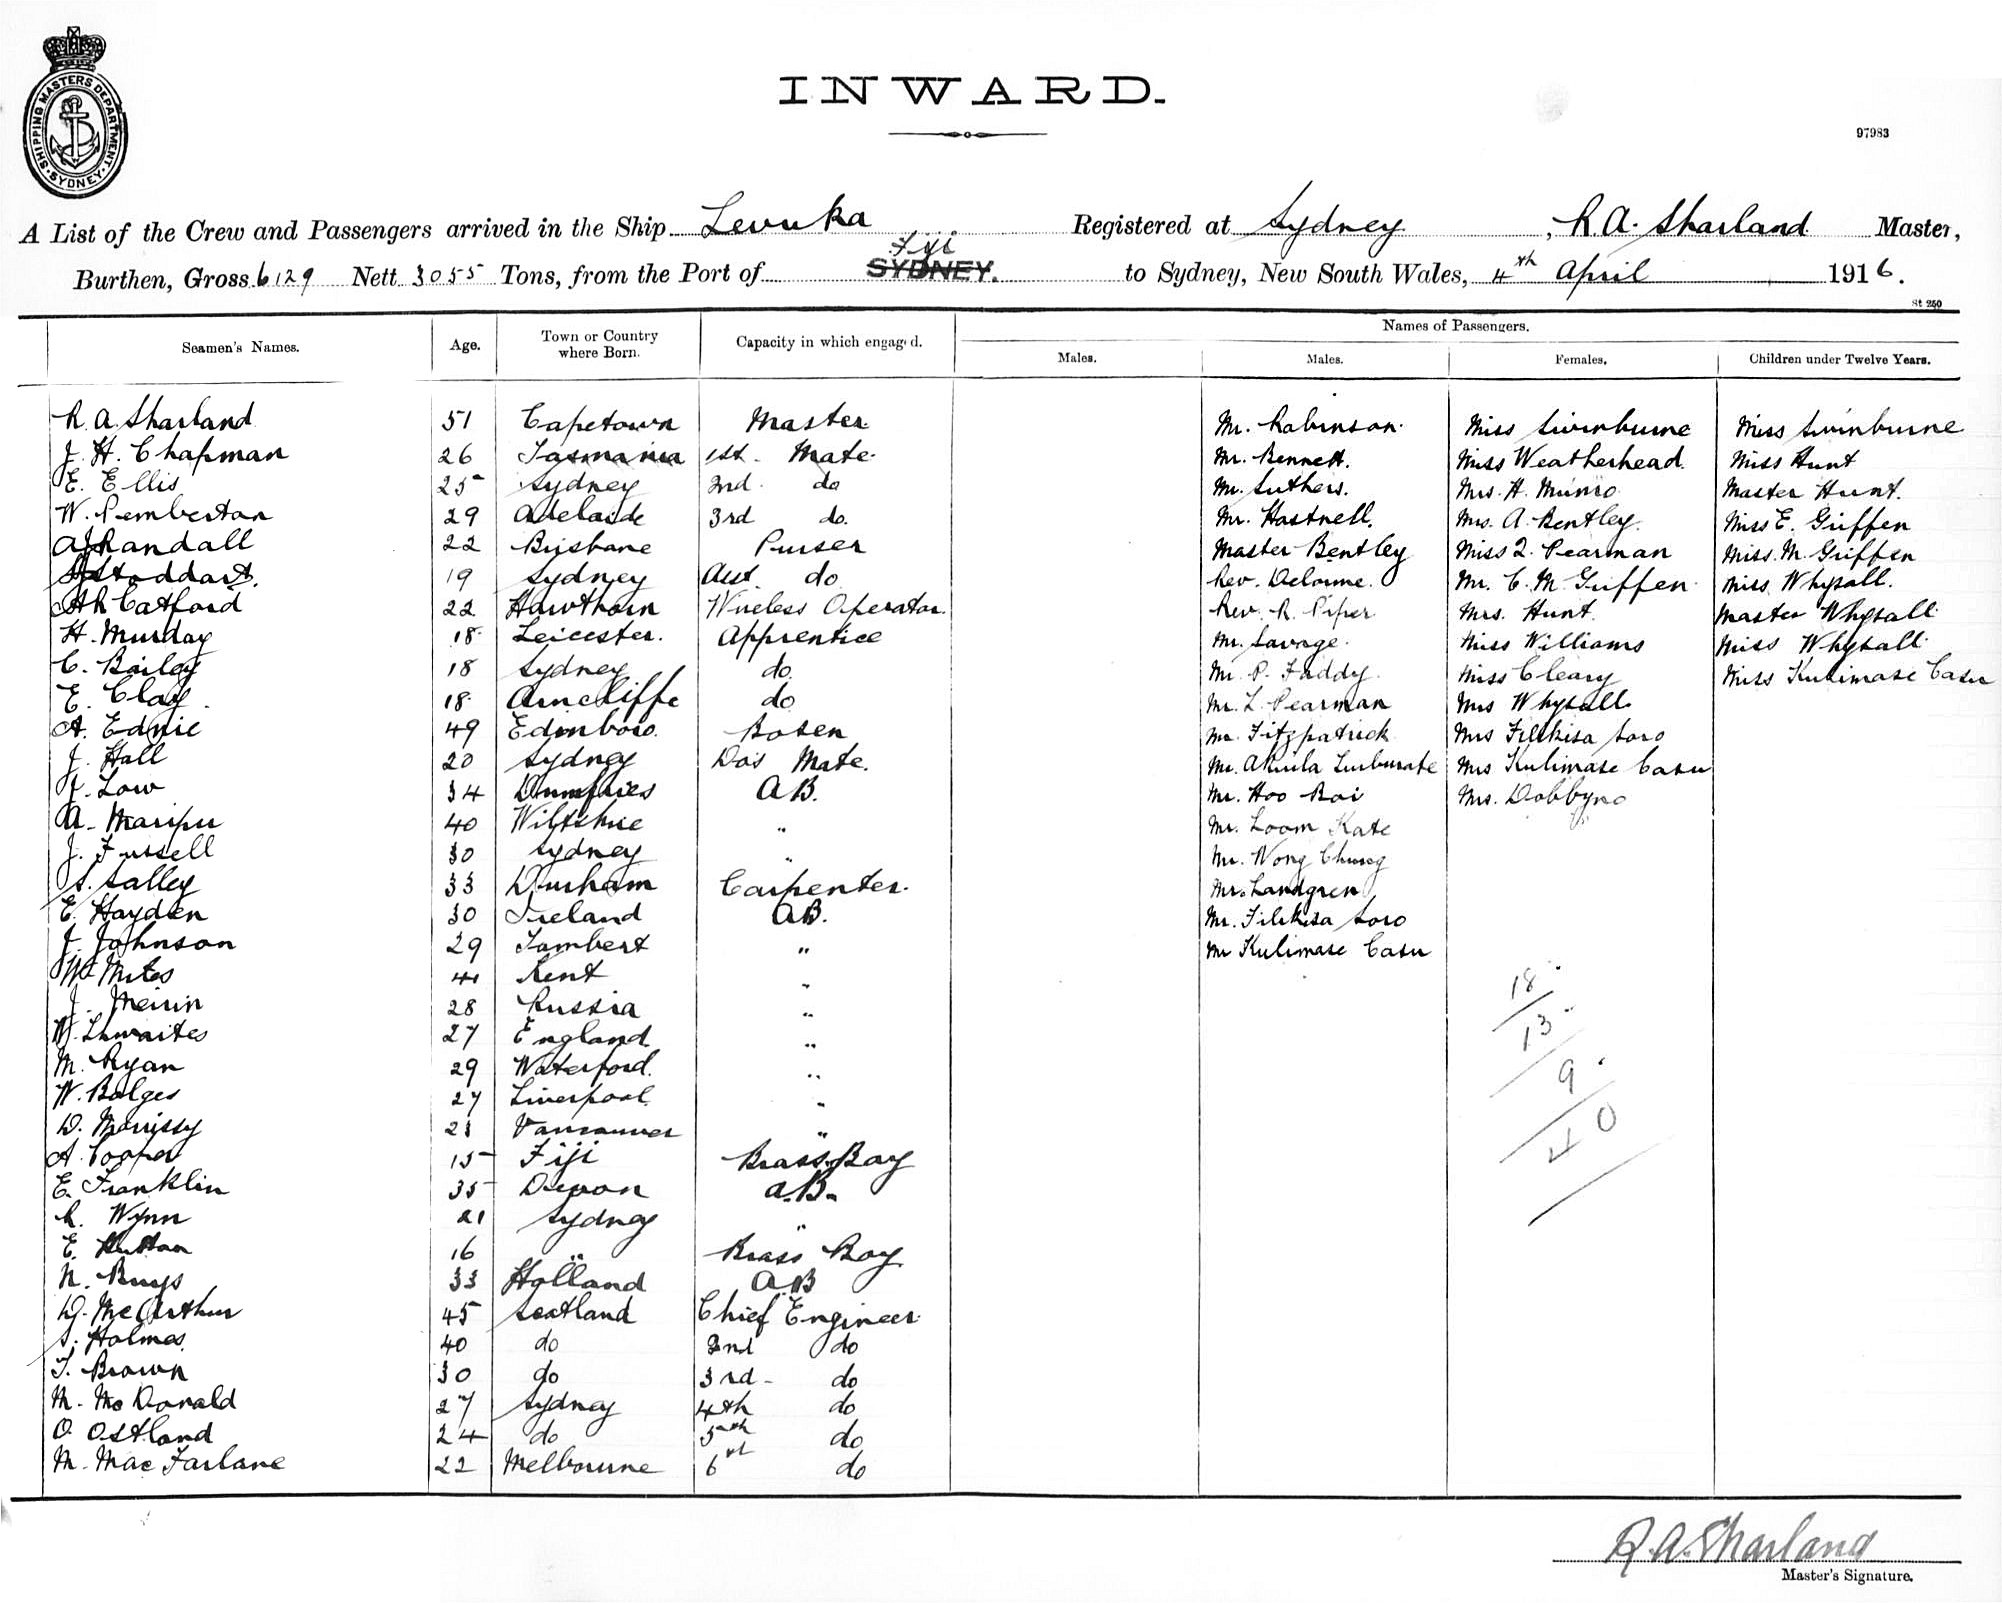 SHIPPING MASTERS DEPARTMENT. SYDNEY.
INWARD.
97983
A List of the Crew and Passengers arrived in the Ship Levuka Registered at Sydney, R A. Sharland Master,
Fiji
Burthen, Gross 6129 Nett 3055 Tons, from the Port of SYDNEY. to Sydney, New South Wales, 4th April 1916.
St 250
Names of Passengers.
Seamen's Names. Age. Town or Country where Born. Capacity in which engaged. Males. Males. Females. Children under Twelve Years.
R. A. Sharland 51 Capetown Master Mr. Robinson Miss Swinburne Miss Swinburne
J. H. Chapman 26 Tasmania 1st. Mate Mr. Bennett. Miss Weatherhead. Miss Hunt
E. Ellis 25 Sydney 2nd. do Mr. Suthers. Mrs. H. Munro Master Hunt.
W. Pemberton 29 Adelaide 3rd do. Mr. Hastnell. Mrs. A. Bentley. Miss E. Giffen
A J Randall 22 Brisbane Purser Master Bentley Miss Q. Pearman Miss. M. Giffen
Stoddart. 19 Sydney Asst. do Rev. Delorme. Mr. C. M. Giffen Miss Whysall.
Catford 22 Hawthorn Wireless Operator. Rev. R. Piper Mrs. Hunt. Master Whysall
H. Murday 18 Leicester. Apprentice Mr. Savage. Miss Williams Miss Whysall
C. Bailey 18 Sydney do. Mr. P. Faddy. Miss Cleary Miss Kulimase Casu
E. Clay 18 Arncliffe do Mr. L. Pearman Mrs Whysall
A. Ednie 49 Edinboro. Bosen Mr. Fitzpatrick Mrs Filikisa Soro
J. Hall 20 Sydney Do's Mate. Mr. Akuila Mrs Kulimase Casu
J. Low 34 Dumfries A.B. Mr. Hoo Boi Mrs. Dobbyns
A. 40 Wiltshire " Mr. Loom Kate
J. Fussell 30 Sydney " Mr. Wong Chung
S. Salley 33 Durham Carpenter. Mr. Landgren
E. Hayden 30 Ireland A.B. Mr. Filikisa Soro
J. Johnson 29 Lambert " Mr Kulimase Casu
W. Miles 41 Kent "
J. 28 Russia "
W. Thwaites 27 England "
M. Ryan 29 Waterford. "
W. Bolger 27 Liverpool "
D. Morrissy 21 Vancouver "
A. Cooper 15 Fiji Brass Boy
E. Franklin 35 Devon A.B.
R. Wynn 21 Sydney "
E. Hutton 16 " Brass Boy
N. Buys 33 Holland A.B
D. McArthur 45 Scotland Chief Engineer
S. Holmes 40 do 2nd do
T. Brown 30 do 3rd do
M. McDonald 27 Sydney 4th do
O. Ostland 24 do 5th do
M. MacFarlane 22 Melbourne 6th do
18
13
9
40
R. A. Sharland
Master's Signature.